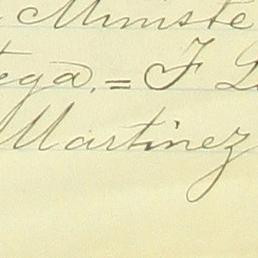 Ministe
ega. = F L
Martinez